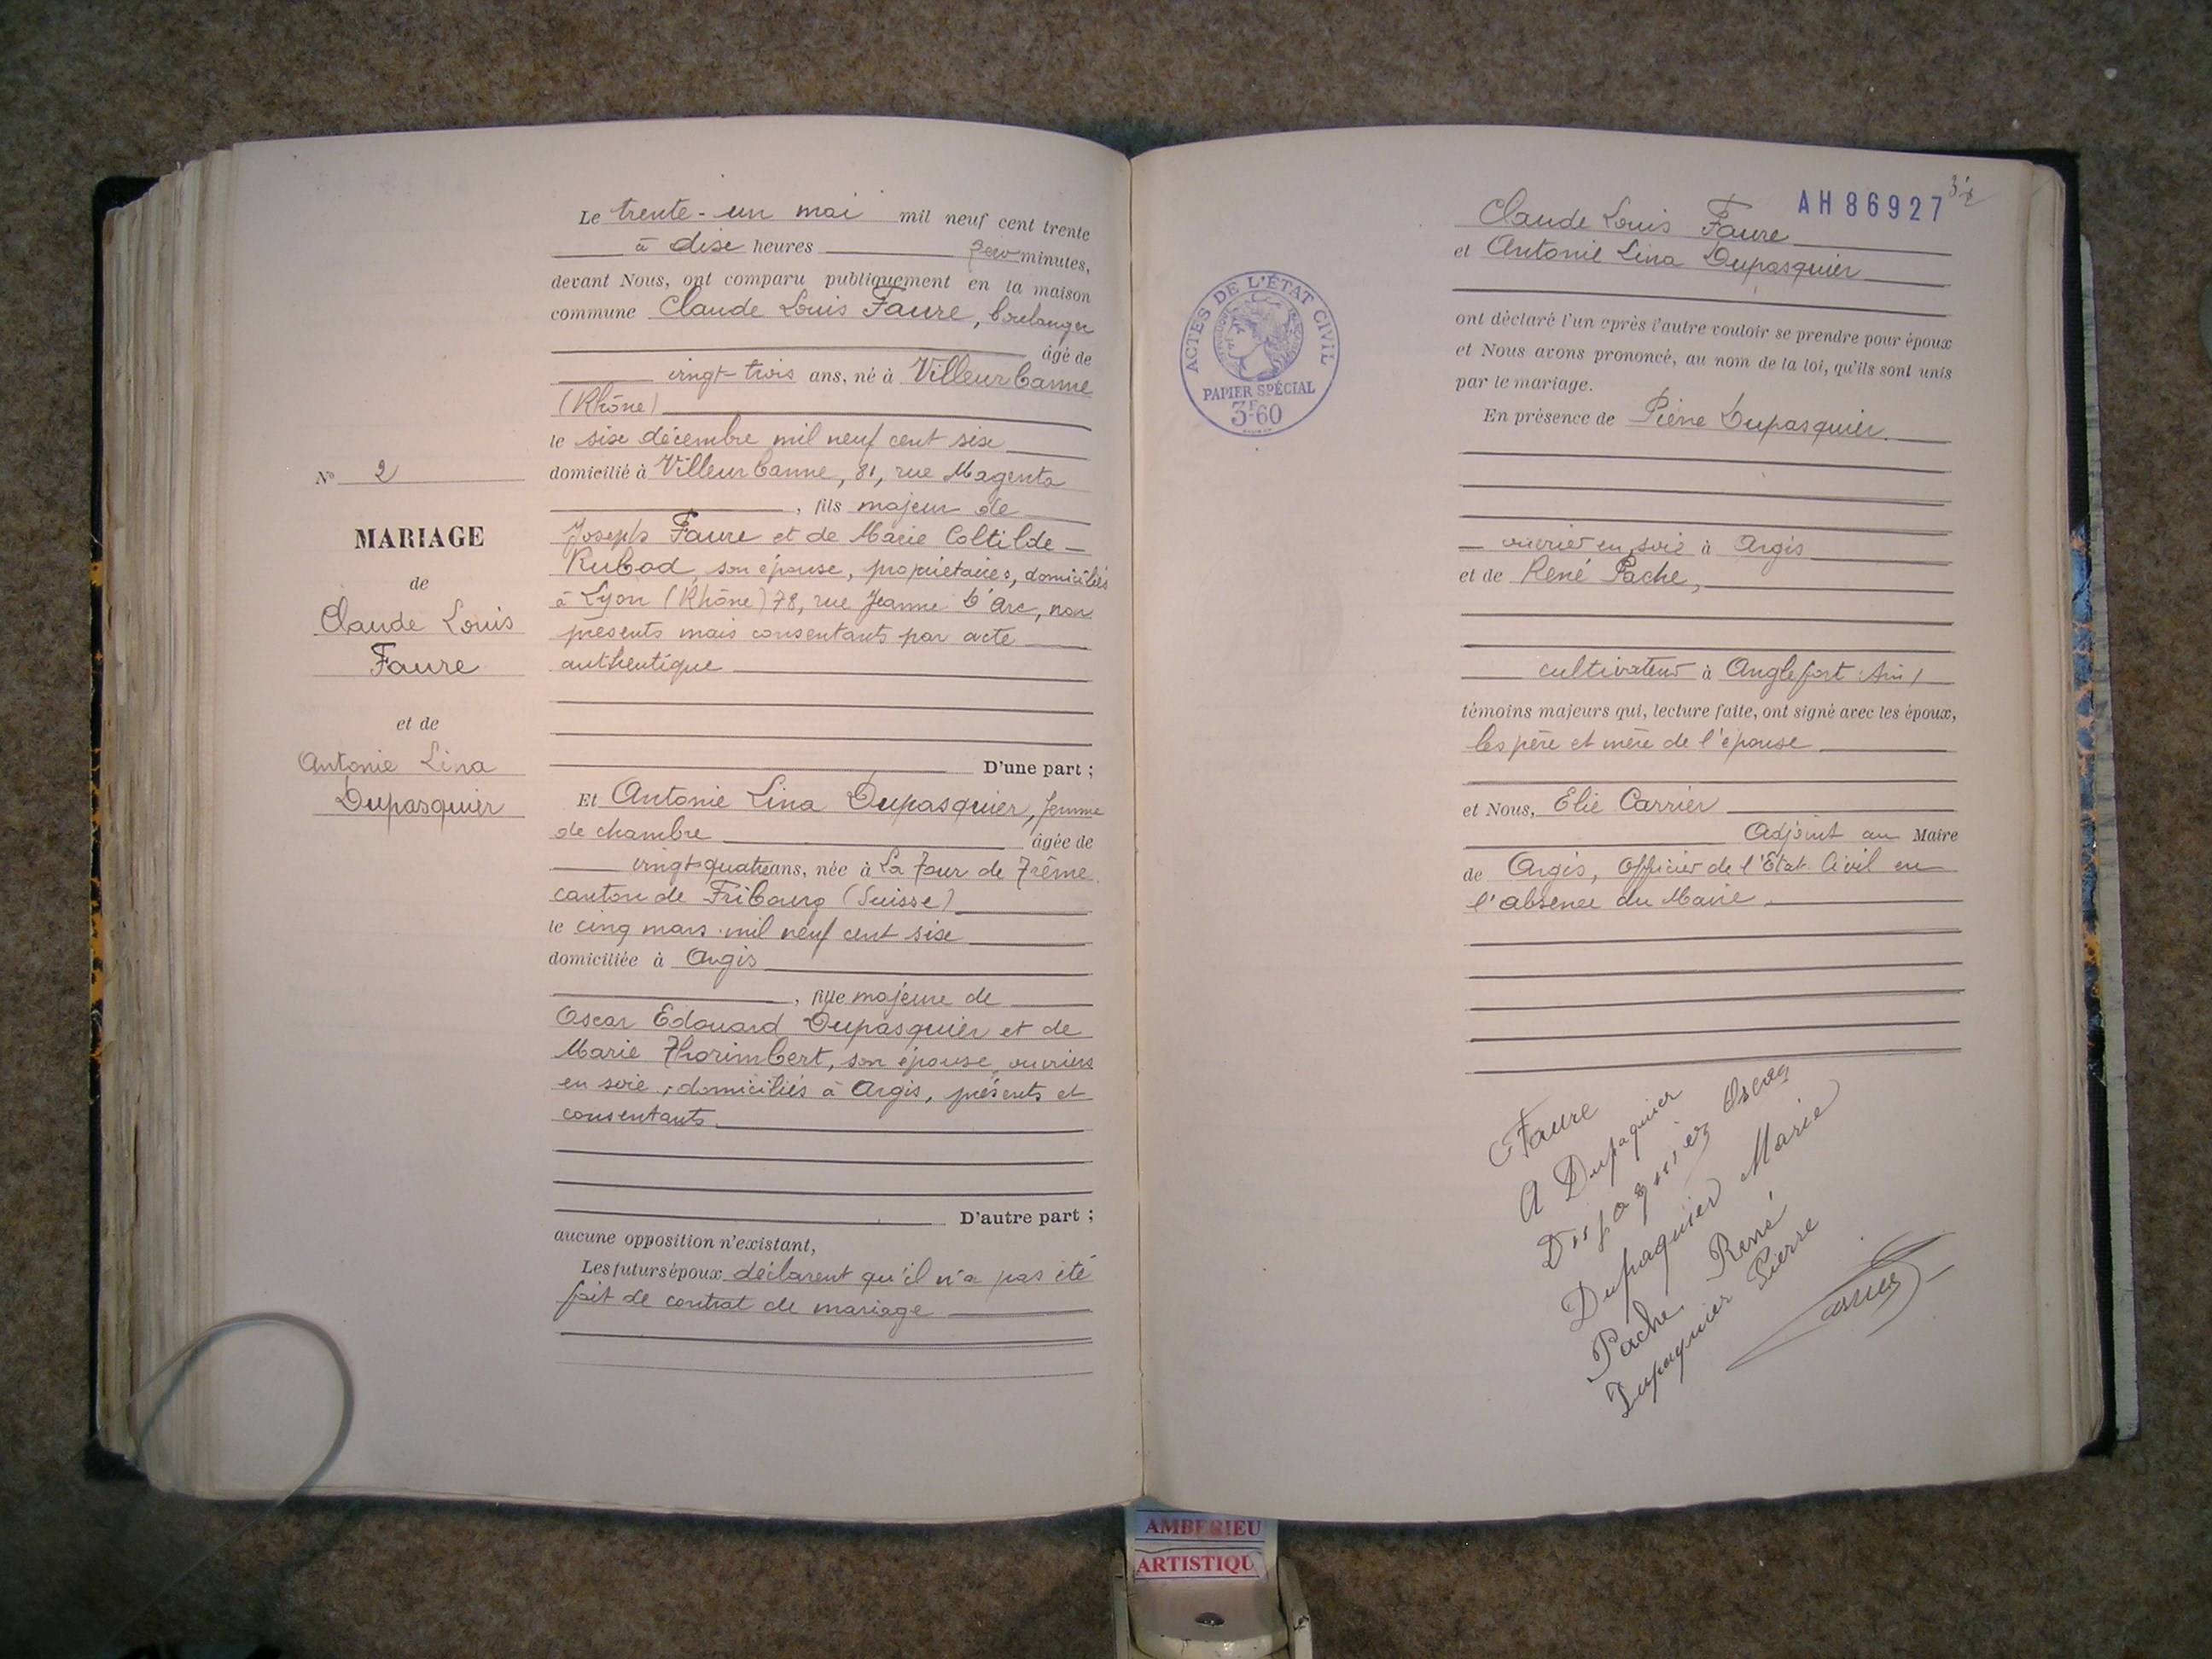 N° 2
MARIAGE
de
Claude Louis
Faure
et de
Antonie Lina
Dupasquier
Le trente-un mai mil neuf cent trente
à dix heures minutes,
devant Nous, ont comparu publiquement en la maison
commune Claude Louis Faure, boulanger
âgé de
vingt-trois ans, né à Villeurbanne
(Rhône)
le six décembre mil neuf cent six
domicilié à Villeurbanne, 81, rue Magenta
, fils majeur de
Joseph Faure et de Marie Coltilde
Rubod, son épouse, propriétaires, domiciliés
à Lyon (Rhône) 78, rue Jeanne D'Arc, non
présents mais consentants par acte
authentique
D'une part ;
Et Antonie Lina Dupasquier, femme
de chambre âgée de
vingt-quatre ans, née à La Tour de Trême
canton de Fribourg (Suisse)
le cinq mars mil neuf cent six
domiciliée à Argis
, fille majeure de
Oscar Edouard Dupasquier et de
Marie Thorimbert, son épouse, ouvriers
en soie, domiciliés à Argis, présents et
consentants.
D'autre part ;
aucune opposition n'existant,
Les futurs époux déclarent qu'il n'a pas été
fait de contrat de mariage
AH 86927
ACTES DE L'ÉTAT CIVIL
PAPIER SPÉCIAL
3F60
Claude Louis Faure
et Antonie Lina Dupasquier
ont déclaré l'un après l'autre vouloir se prendre pour époux
et Nous avons prononcé, au nom de la loi, qu'ils sont unis
par le mariage.
En présence de Pierre Dupasquier.
ouvrier en soie à Argis
et de René Pache,
cultivateur à Anglefort (Ain)
témoins majeurs qui, lecture faite, ont signé avec les époux,
les père et mère de l'épouse
et Nous, Elie Carrier
Adjoint au Maire
de Argis, Officier de l'Etat-Civil en
l'absence du Maire.
C Faure
A Dupaquier
Dupaquier Oscar
Dupaquier Marie
Pache René
Dupaquier Pierre
AMBERIEU
ARTISTIQU